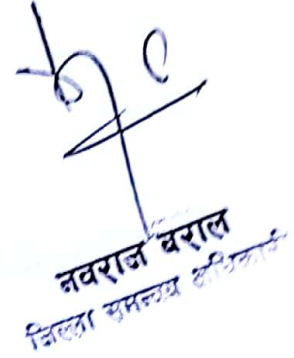 नवराज बराल
जिल्ला समन्वय अधिकारी